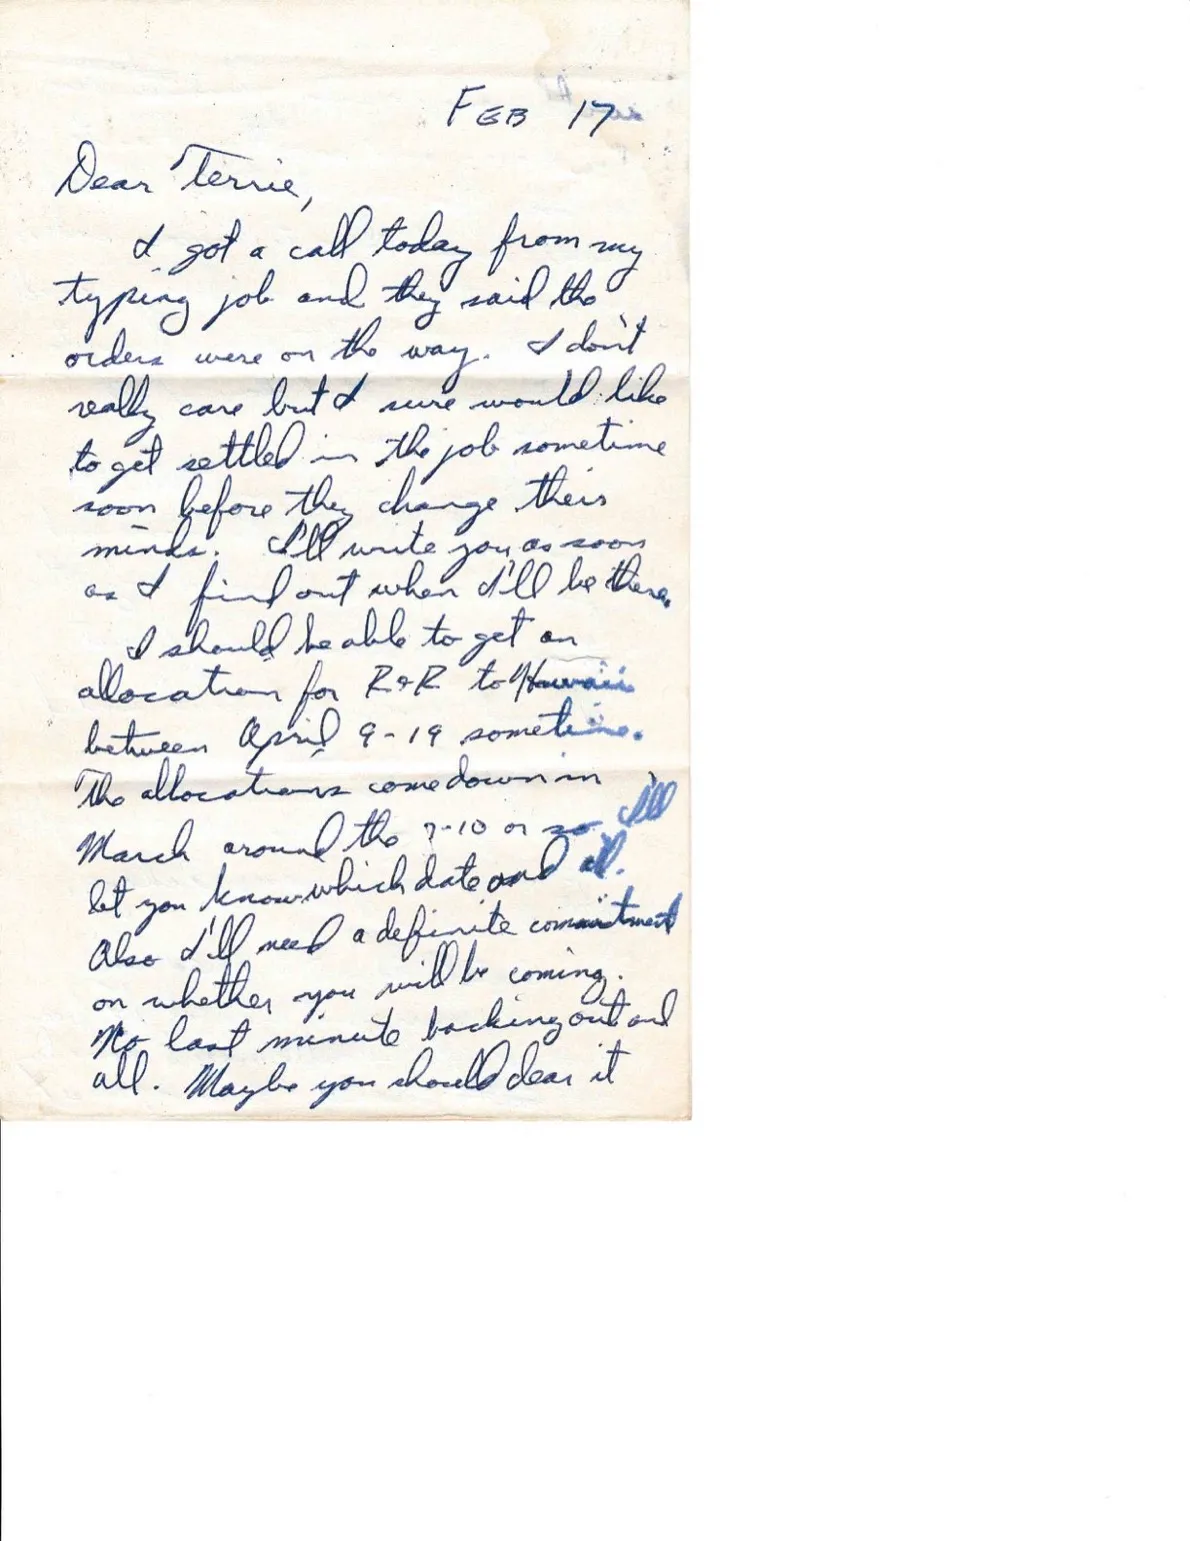 FEB 17
Dear Terrie,
I got a call today from my
typing job and they said the
orders were on the way. I don't
really care but I sure would like
to get settled in the job sometime
soon before they change their
minds. I'll write you as soon
as I find out when I'll be there.
I should be able to get an
allocation for R&R to Hawaii
between April 9-19 sometime.
The allocations come down in
March around the 7-10 or so I'll
let you know which date and all.
Also I'll need a definite commitment
on whether you will be coming.
No last minute backing out and
all. Maybe you should clear it